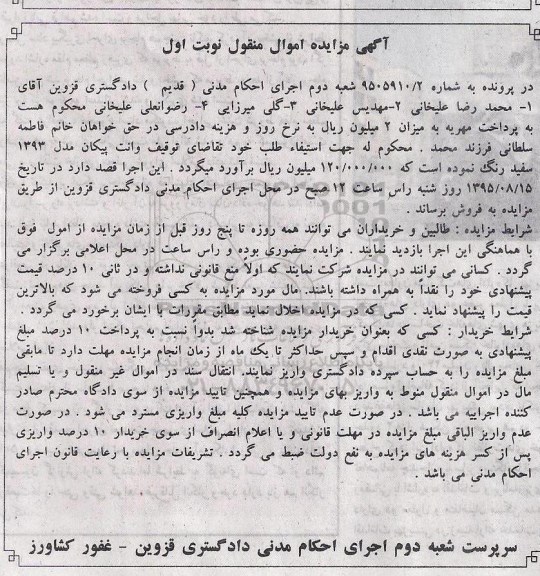 آگهی مزایده اموال منقول نوبت اول
در پرونده به شماره ۹۵۰۵۹۱۰/۲ شعبه دوم اجرای احکام مدنی ( قدیم ) دادگستری قزوین آقای
۱- محمد رضا علیخانی ۲-مهدیس علیخانی ۳-گلی میرزایی ۴- رضوانعلی علیخانی محکوم هست
به پرداخت مهریه به میزان ۲ میلیون ریال به نرخ روز و هزینه دادرسی در حق خواهان خانم فاطمه
سلطانی فرزند محمد . محکوم له جهت استیفاء طلب خود تقاضای توقیف وانت پیکان مدل ۱۳۹۳
سفید رنگ نموده است که ۱۲۰/۰۰۰/۰۰۰ میلیون ریال برآورد میگردد . این اجرا قصد دارد در تاریخ
۱۳۹۵/۰۸/۱۵ روز شنبه راس ساعت ۱۲ صبح در محل اجرای احکام مدنی دادگستری قزوین از طریق
مزایده به فروش برساند .
شرایط مزایده : طالبین و خریداران می توانند همه روزه تا پنج روز قبل از زمان مزایده از اموال فوق
با هماهنگی این اجرا بازدید نمایند . مزایده حضوری بوده و راس ساعت در محل اعلامی برگزار می
گردد . کسانی می توانند در مزایده شرکت نمایند که اولاً منع قانونی نداشته و در ثانی ۱۰ درصد قیمت
پیشنهادی خود را نقداً به همراه داشته باشند. مال مورد مزایده به کسی فروخته می شود که بالاترین
قیمت را پیشنهاد نماید . کسی که در مزایده اخلال نماید مطابق مقررات با ایشان برخورد می گردد .
شرایط خریدار : کسی که بعنوان خریدار مزایده شناخته شد بدواً نسبت به پرداخت ۱۰ درصد مبلغ
پیشنهادی به صورت نقدی اقدام و سپس حداکثر تا یک ماه از زمان انجام مزایده مهلت دارد تا مابقی
مبلغ مزایده را به حساب سپرده دادگستری واریز نمایند. انتقال سند در اموال غیر منقول و یا تسلیم
مال در اموال منقول منوط به واریز بهای مزایده و همچنین تایید مزایده از سوی دادگاه محترم صادر
کننده اجراییه می باشد . در صورت عدم تایید مزایده کلیه مبلغ واریزی مسترد می شود . در صورت
عدم واریز الباقی مبلغ مزایده در مهلت قانونی و یا اعلام انصراف از سوی خریدار ۱۰ درصد واریزی
پس از کسر هزینه های مزایده به نفع دولت ضبط می گردد . تشریفات مزایده با رعایت قانون اجرای
احکام مدنی می باشد .
سرپرست شعبه دوم اجرای احکام مدنی دادگستری قزوین - غفور کشاورز